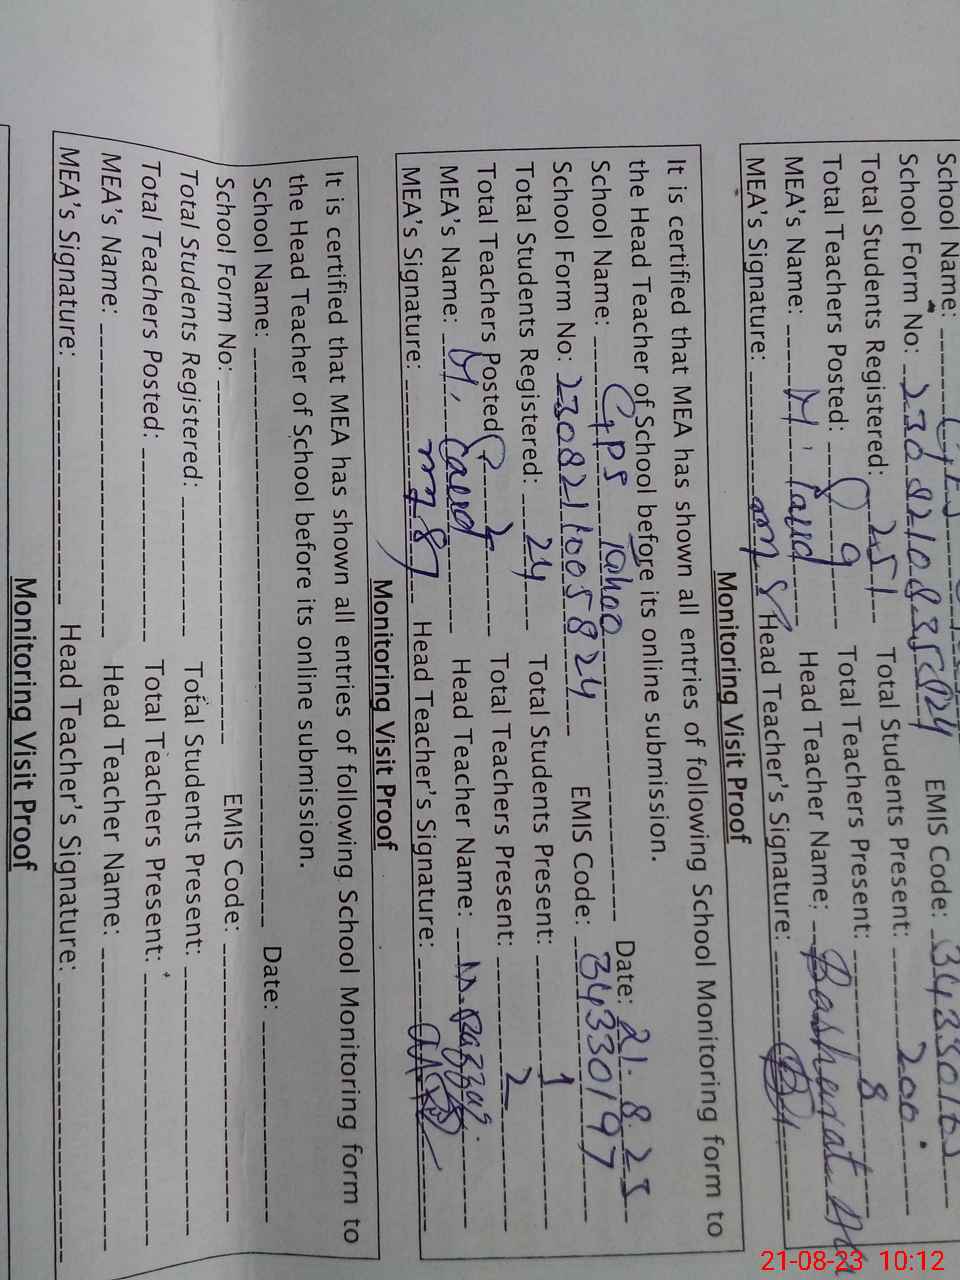 School Name:
School Form No: EMIS Code:
Total Students Registered: 251 Total Students Present: 200
Total Teachers Posted: 9 Total Teachers Present: 8
MEA's Name: M. Head Teacher Name: Basharat
MEA's Signature: Head Teacher's Signature:
Monitoring Visit Proof
It is certified that MEA has shown all entries of following School Monitoring form to
the Head Teacher of School before its online submission.
School Name: GPS Date: 21.8.23
School Form No: 2308211005824 EMIS Code: 34330197
Total Students Registered: 24 Total Students Present: 1
Total Teachers Posted: 2 Total Teachers Present: 2
MEA's Name: M. Head Teacher Name: M. Razzaq.
MEA's Signature: Head Teacher's Signature:
Monitoring Visit Proof
It is certified that MEA has shown all entries of following School Monitoring form to
the Head Teacher of School before its online submission.
School Name: Date:
School Form No: EMIS Code:
Total Students Registered: Total Students Present:
Total Teachers Posted: Total Teachers Present:
MEA's Name: Head Teacher Name:
MEA's Signature: Head Teacher's Signature:
Monitoring Visit Proof
21-08-23 10:12